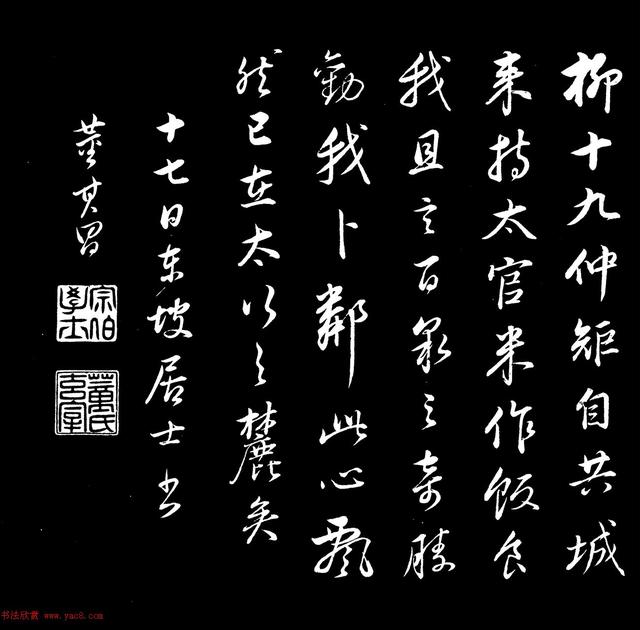 柳十九仲矩自共城
来持太官米作飯食
我且言百泉之奇勝
勸我卜鄰此心飄
然已在太行之麓矣
十七日東坡居士书
董其昌
宗伯學士
董氏玄宰
书法欣赏 www.yac8.com